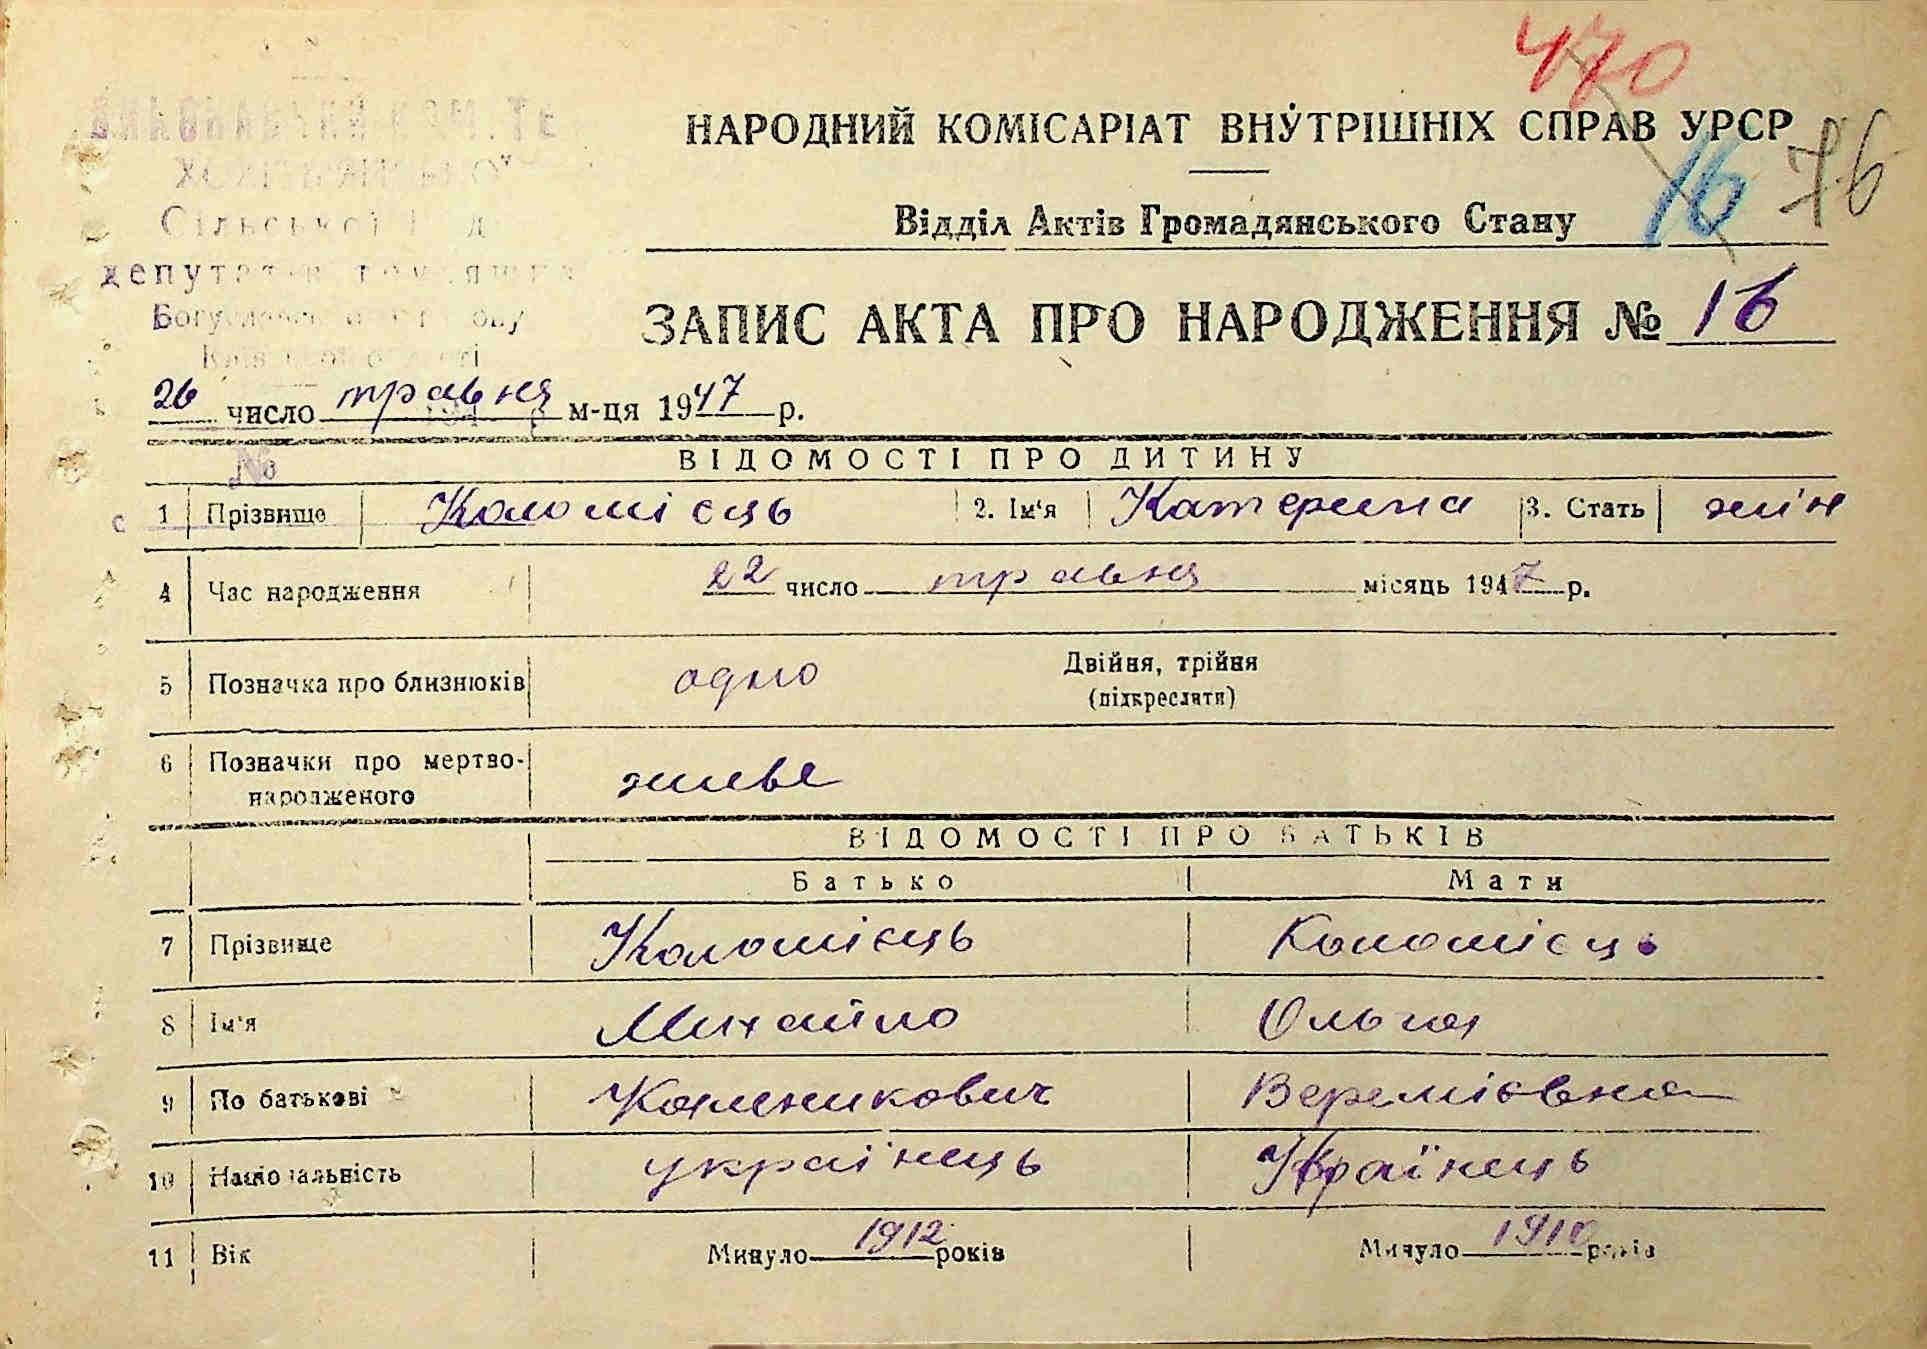 470
НАРОДНИЙ КОМІСАРІАТ ВНУТРІШНІХ СПРАВ УРСР
16 76
Відділ Актів Громадянського Стану
Сільської
депутатів
ЗАПИС АКТА ПРО НАРОДЖЕННЯ № 16
26 число травня м-ця 1947 р.
№
ВІДОМОСТІ ПРО ДИТИНУ
1 Прізвище Коломієць 2. Ім'я Катерина 3. Стать жін
4 Час народження 22 число травня місяць 1947 р.
5 Позначка про близнюків одно Двійня, трійня
(підкреслити)
6 Позначки про мертво-
народженого живе
ВІДОМОСТІ ПРО БАТЬКІВ
Батько Мати
7 Прізвище Коломієць Коломієць
8 Ім'я Михайло Ольга
9 По батькові Каленикович Веремієвна
10 Національність українець Українець
11 Вік Минуло 1912 років Минуло 1910 років